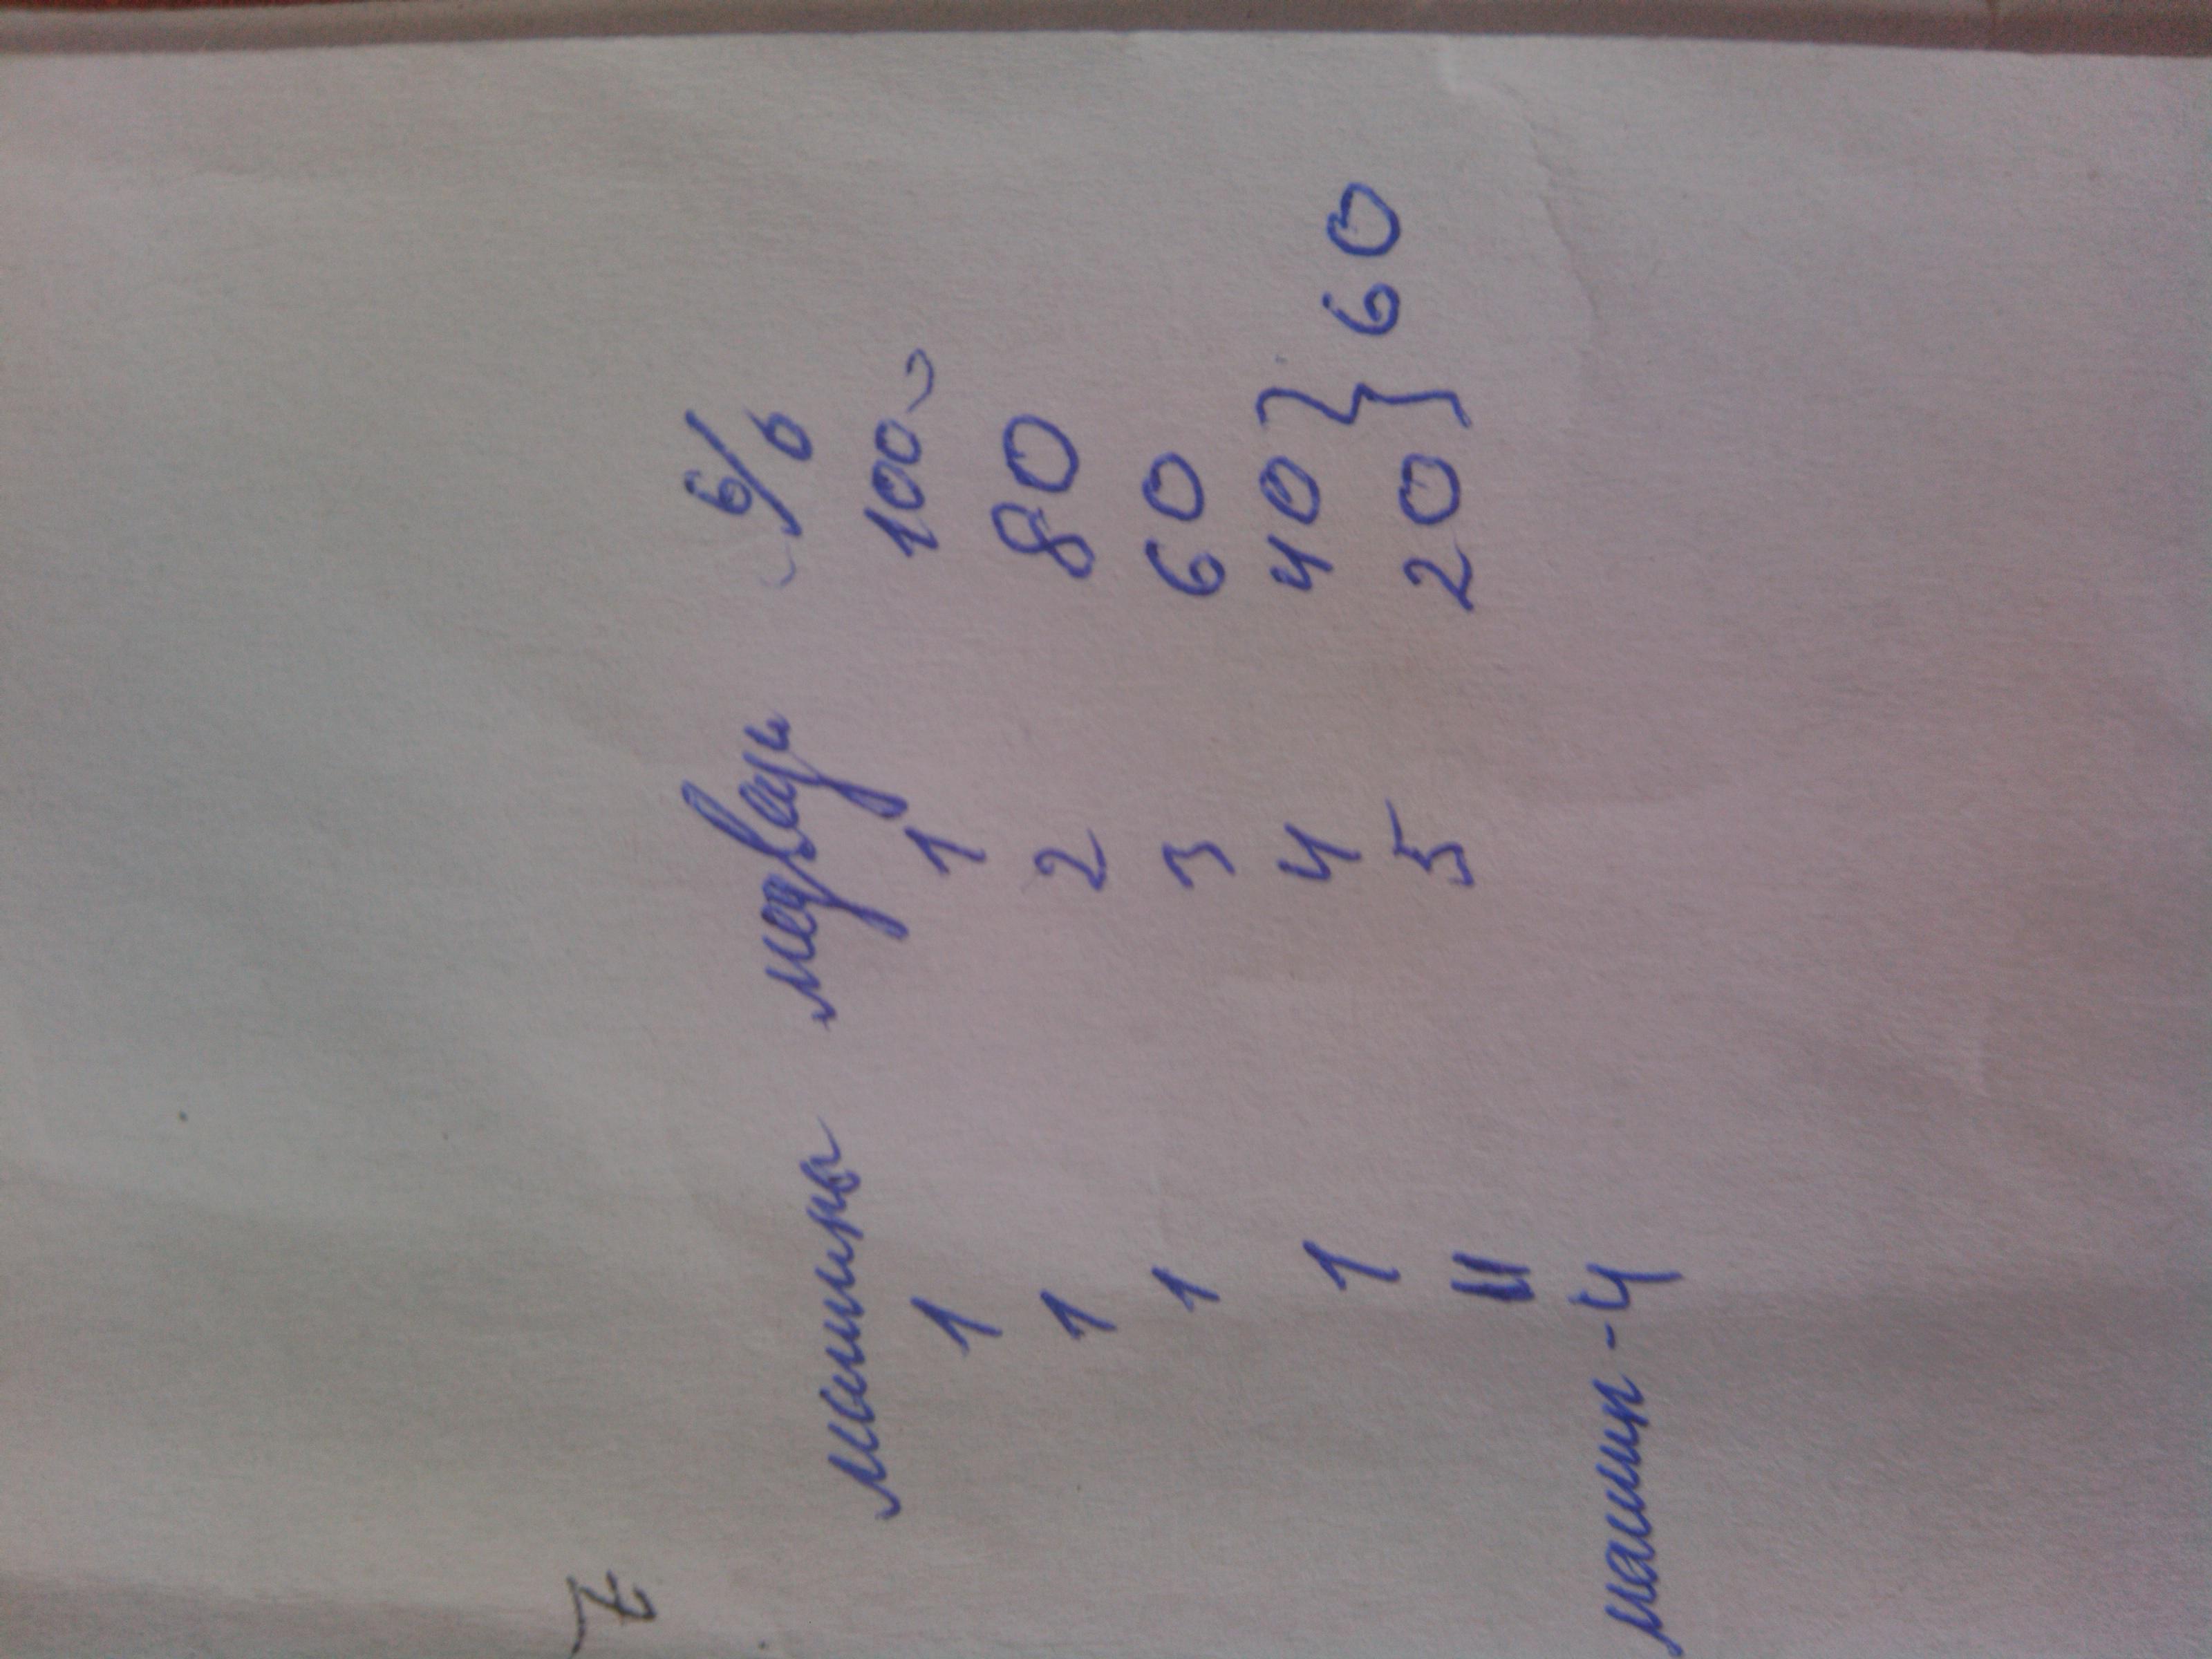 7
машины медведь б/в
1 1 100
1 2 80
1 3 60
1 4 40 } 60
5 20
машин - 4